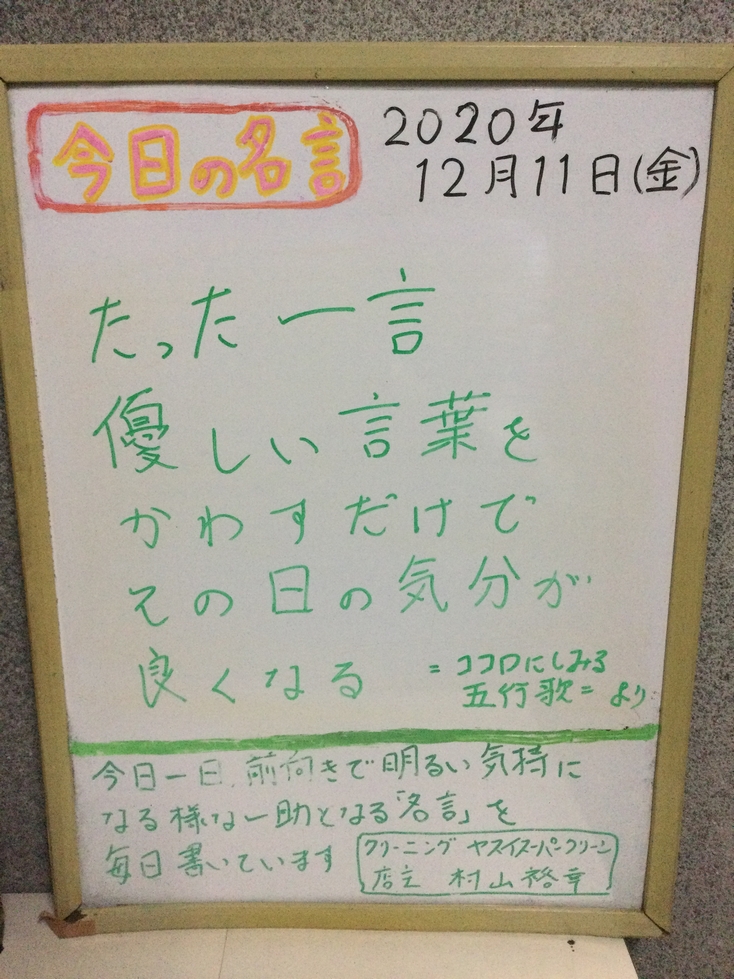 今日の名言
2020年
12月11日(金)
たった一言
優しい言葉を
かわすだけで
その日の気分が
良くなる
=ココロにしみる
五行歌=より
今日一日、前向きで明るい気持に
なる様な一助となる「名言」を
毎日書いています
クリーニング ヤスイスーパークリーン
店主 村山裕幸